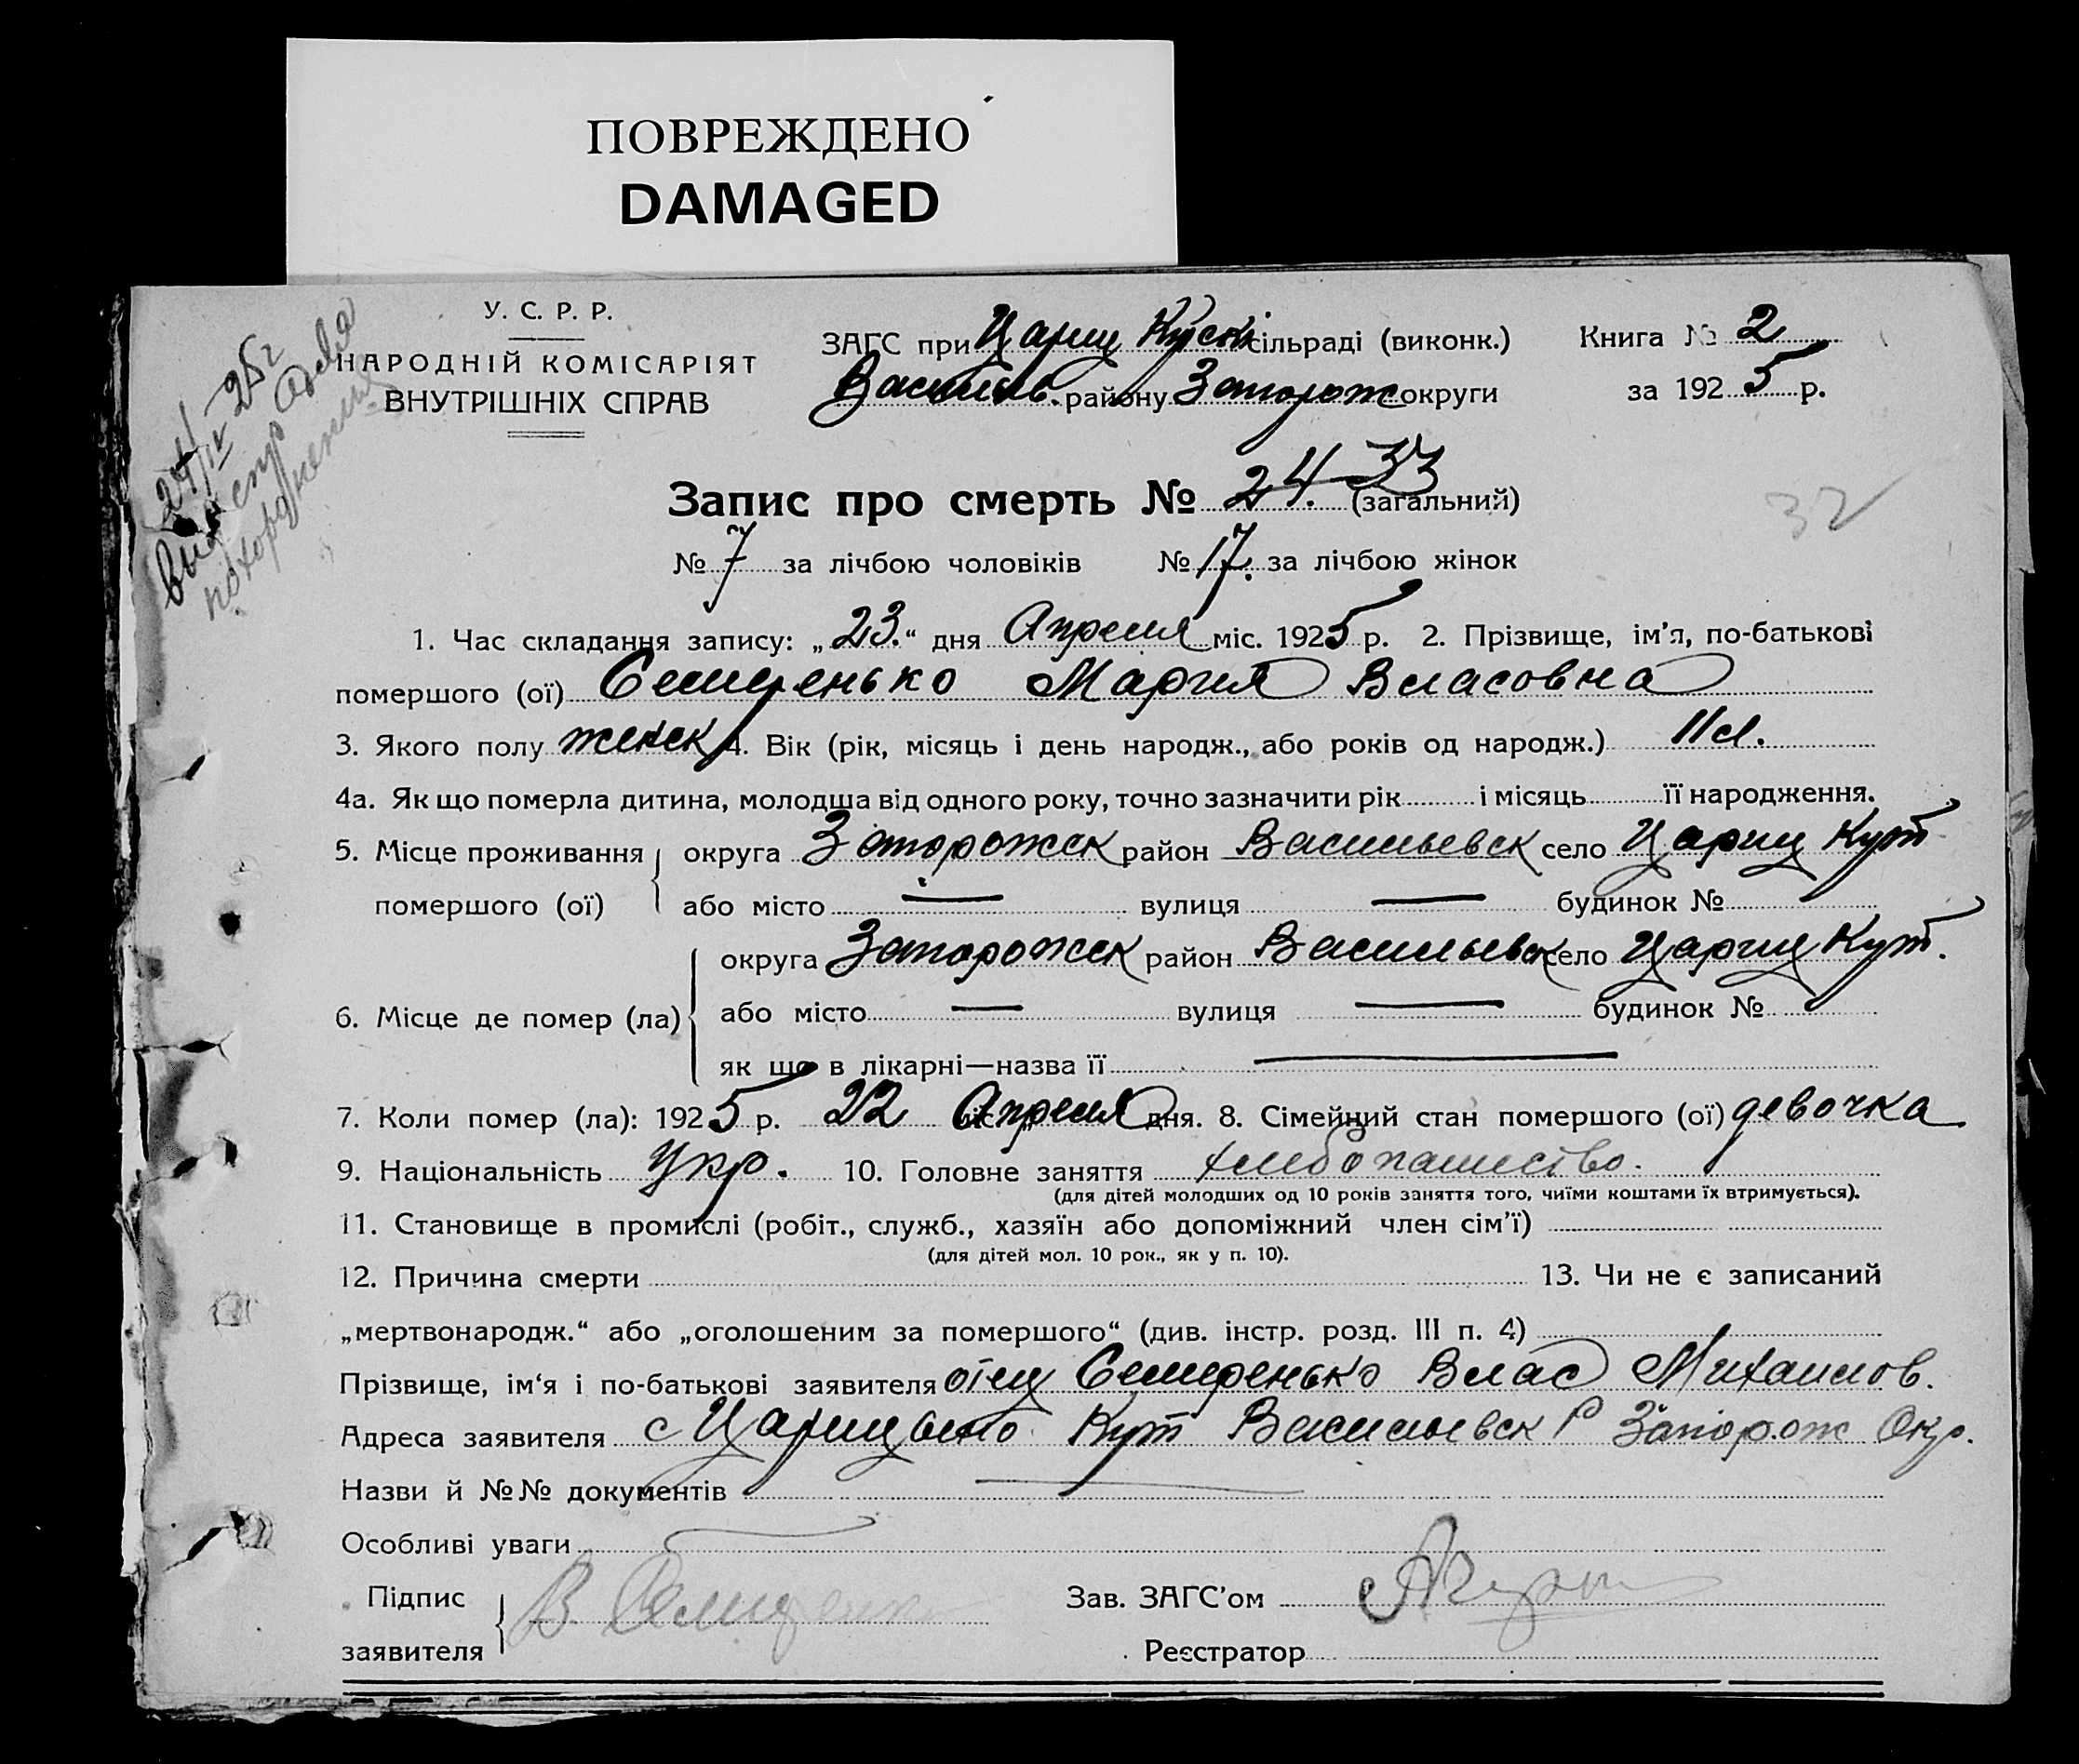 ПОВРЕЖДЕНО
DAMAGED
У. С. Р. Р.
НАРОДНІЙ КОМІСАРІЯТ
ВНУТРІШНІХ СПРАВ
24/IV-25г
похоронения
ЗАГС при Цариц Кутск сільраді (виконк.)
Книга № 2
Василів. району Запорож округи
за 1925 р.
Запис про смерть № 24. 33 (загальний)
32
№ 7 за лічбою чоловіків № 17. за лічбою жінок
1. Час складання запису: „23.“ дня Апреля міс. 1925 р. 2. Прізвище, ім’я, по-батькові
помершого (ої) Семиренько Мария Власовна
3. Якого полу женск 4. Вік (рік, місяць і день народж., або років од народж.) 11 л.
4а. Як що померла дитина, молодша від одного року, точно зазначити рік і місяць її народження.
5. Місце проживання помершого (ої) округа Запорожск район Васильевск село Цариц Кут
або місто — вулиця — будинок №
6. Місце де помер (ла) округа Запорожск район Васильевск село Цариц Кут.
або місто — вулиця — будинок №
як що в лікарні—назва її —
7. Коли помер (ла): 1925 р. 22 міс. Апреля дня. 8. Сімейний стан помершого (ої) девочка
9. Національність Укр. 10. Головне заняття хлебопашество.
(для дітей молодших од 10 років заняття того, чиїми коштами їх втримується).
11. Становище в промислі (робіт., служб., хазяїн або допоміжний член сім’ї)
(для дітей мол. 10 рок., як у п. 10).
12. Причина смерти 13. Чи не є записаний
„мертвонародж.“ або „оголошеним за помершого“ (див. інстр. розд. III п. 4)
Прізвище, ім‘я і по-батькові заявителя отец Семиренько Влас Михаилов.
Адреса заявителя с Царицыно Кут Васильевск Р Запорож Окр.
Назви й №№ документів —
Особливі уваги
Підпис заявителя В. Семиренько
Зав. ЗАГС’ом
Реєстратор